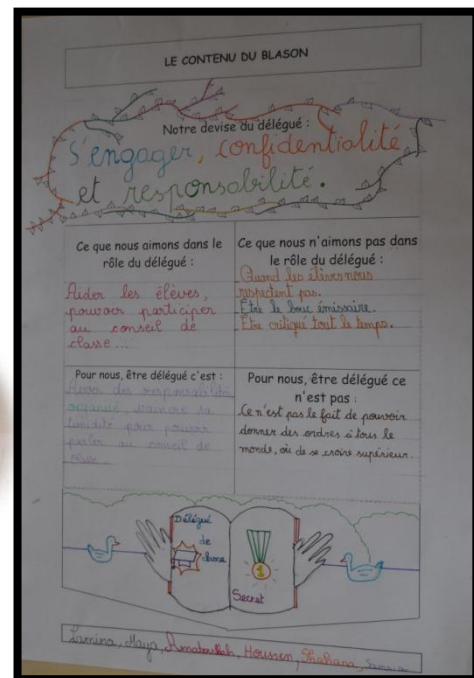 LE CONTENU DU BLASON
Notre devise du délégué :
S'engager, confidentialité
et responsabilité.
Ce que nous aimons dans le
rôle du délégué :
Aider les élèves,
pouvoir participer
au conseil de
classe...
Ce que nous n'aimons pas dans
le rôle du délégué :
Quand les élèves nous
respectent pas.
Être le bouc émissaire.
Être critiqué tout le temps.
Pour nous, être délégué c'est :
Avoir des responsabilités
organisé, vaincre sa
timidité pour pouvoir
parler au conseil de
Pour nous, être délégué ce
n'est pas :
Ce n'est pas le fait de pouvoir
donner des ordres à tous le
monde, où de se croire supérieur.
Délégué
de
classe
1
Secret
Maya, Houssen, Shahana